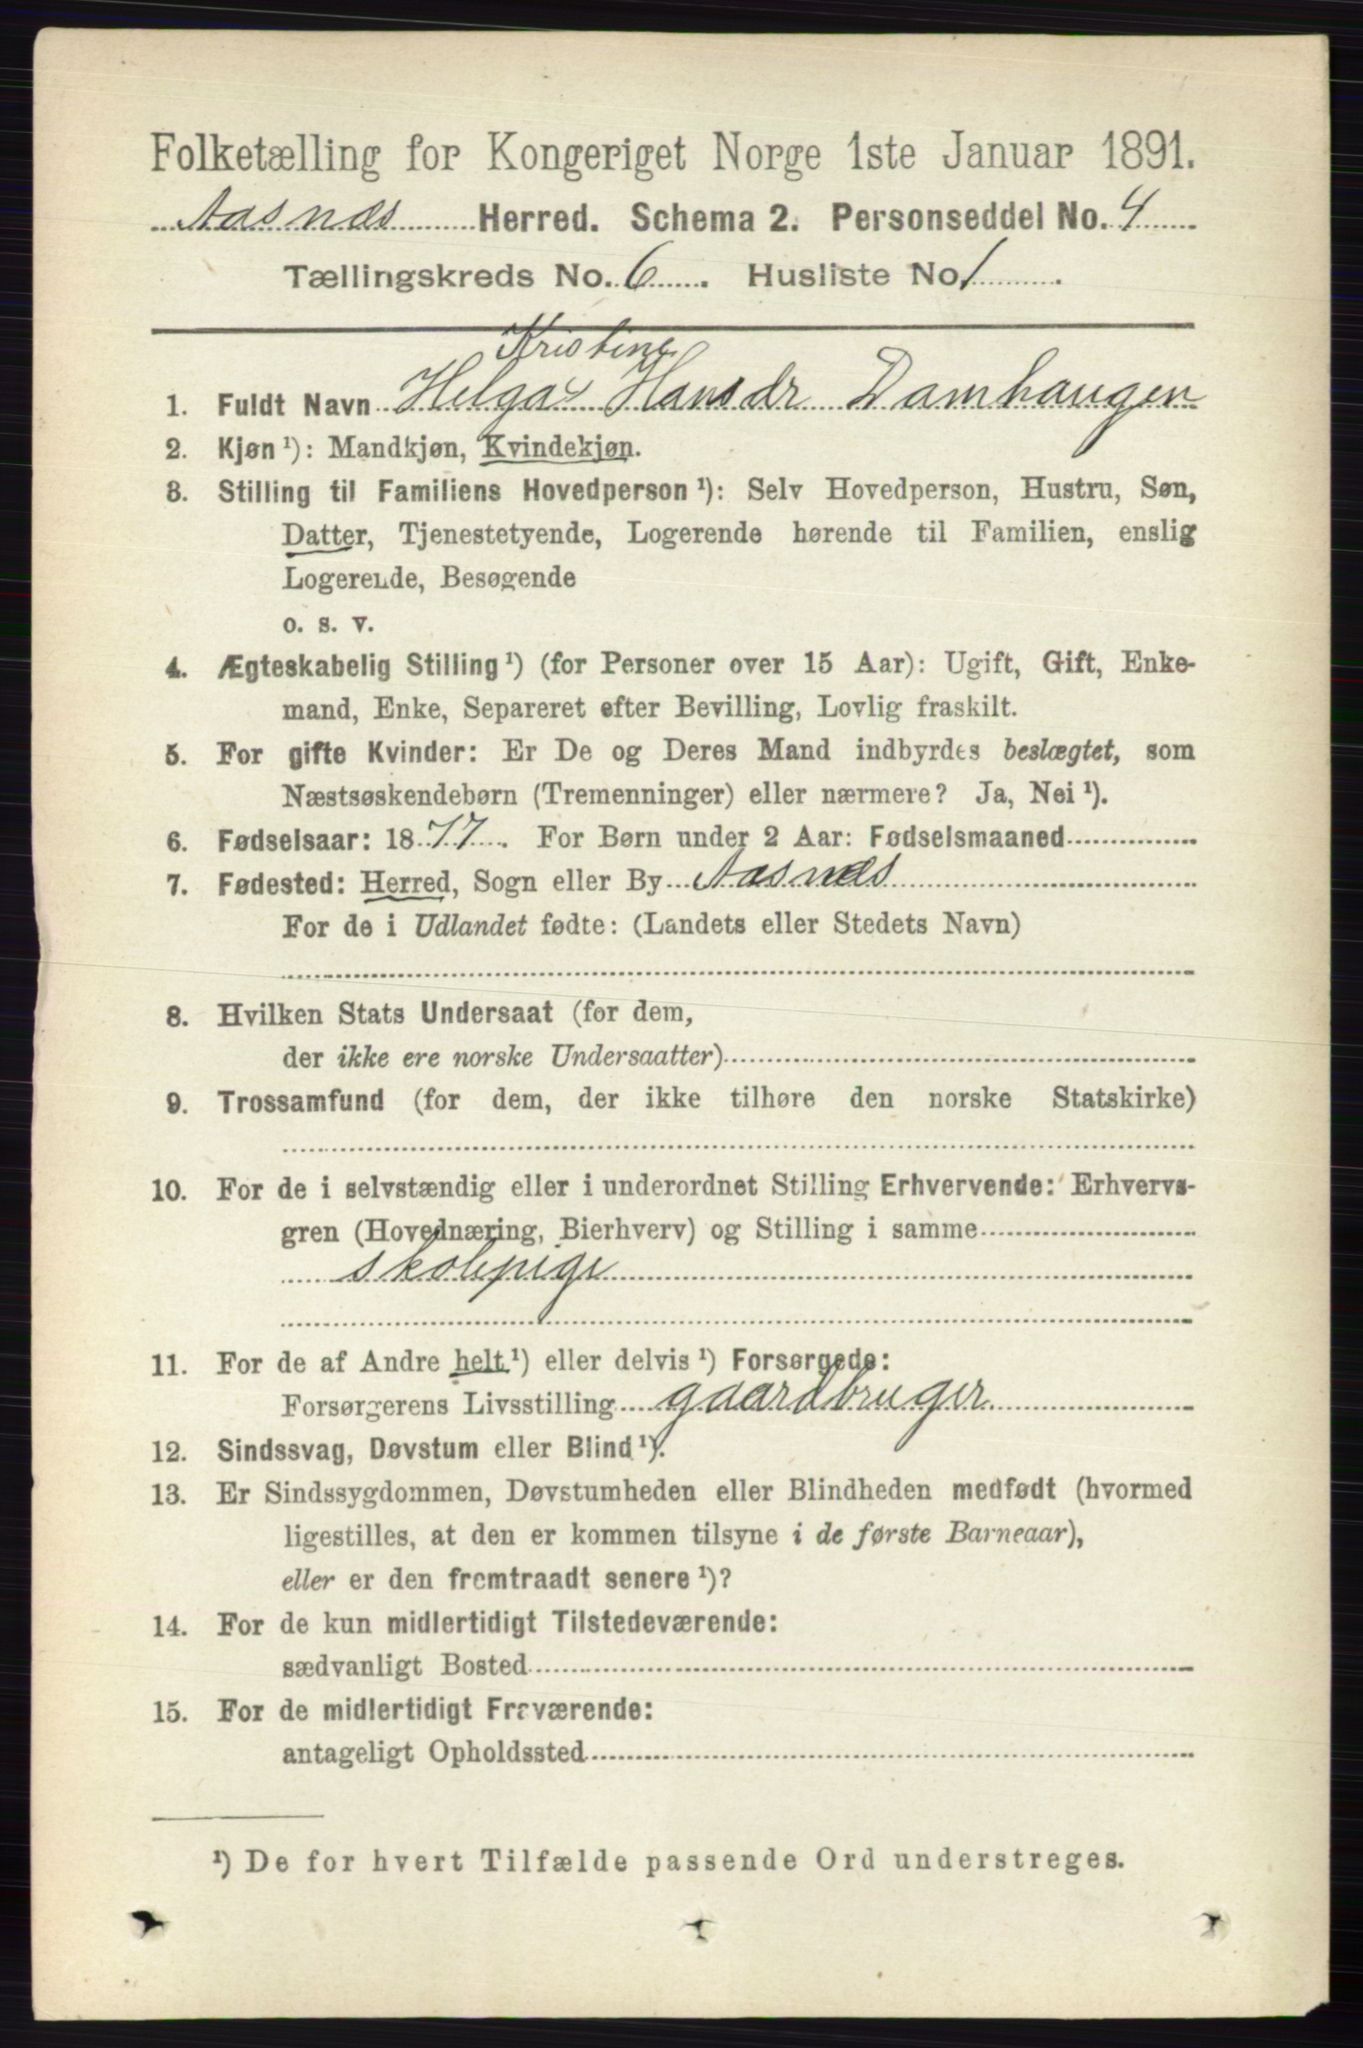 Folketælling for Kongeriget Norge 1ste Januar 1891.
Aasnæs Herred. Schema 2. Personseddel No. 4
Tællingskreds No. 6. Husliste No 1.
Kristine
1. Fuldt Navn Helga x Hansdr Damhaugen
2. Kjøn ¹): Mandkjøn, Kvindekjøn.
3. Stilling til Familiens Hovedperson ¹): Selv Hovedperson, Hustru, Søn,
Datter, Tjenestetyende, Logerende hørende til Familien, enslig
Logerende, Besøgende
o. s. v.
4. Ægteskabelig Stilling ¹) (for Personer over 15 Aar): Ugift, Gift, Enke-
mand, Enke, Separeret efter Bevilling, Lovlig fraskilt.
5. For gifte Kvinder: Er De og Deres Mand indbyrdes beslægtet, som
Næstsøskendebørn (Tremenninger) eller nærmere? Ja, Nei ¹).
6. Fødselsaar: 1877. For Børn under 2 Aar: Fødselsmaaned
7. Fødested: Herred, Sogn eller By Aasnæs
For de i Udlandet fødte: (Landets eller Stedets Navn)
8. Hvilken Stats Undersaat (for dem,
der ikke ere norske Undersaatter)
9. Trossamfund (for dem, der ikke tilhøre den norske Statskirke)
10. For de i selvstændig eller i underordnet Stilling Erhvervende: Erhvervs-
gren (Hovednæring, Bierhverv) og Stilling i samme
skolepige
11. For de af Andre helt ¹) eller delvis ¹) Forsørgede:
Forsørgerens Livsstilling gaardbruger
12. Sindssvag, Døvstum eller Blind ¹).
13. Er Sindssygdommen, Døvstumheden eller Blindheden medfødt (hvormed
ligestilles, at den er kommen tilsyne i de første Barneaar),
eller er den fremtraadt senere ¹)?
14. For de kun midlertidigt Tilstedeværende:
sædvanligt Bosted
15. For de midlertidigt Fraværende:
antageligt Opholdssted
¹) De for hvert Tilfælde passende Ord understreges.